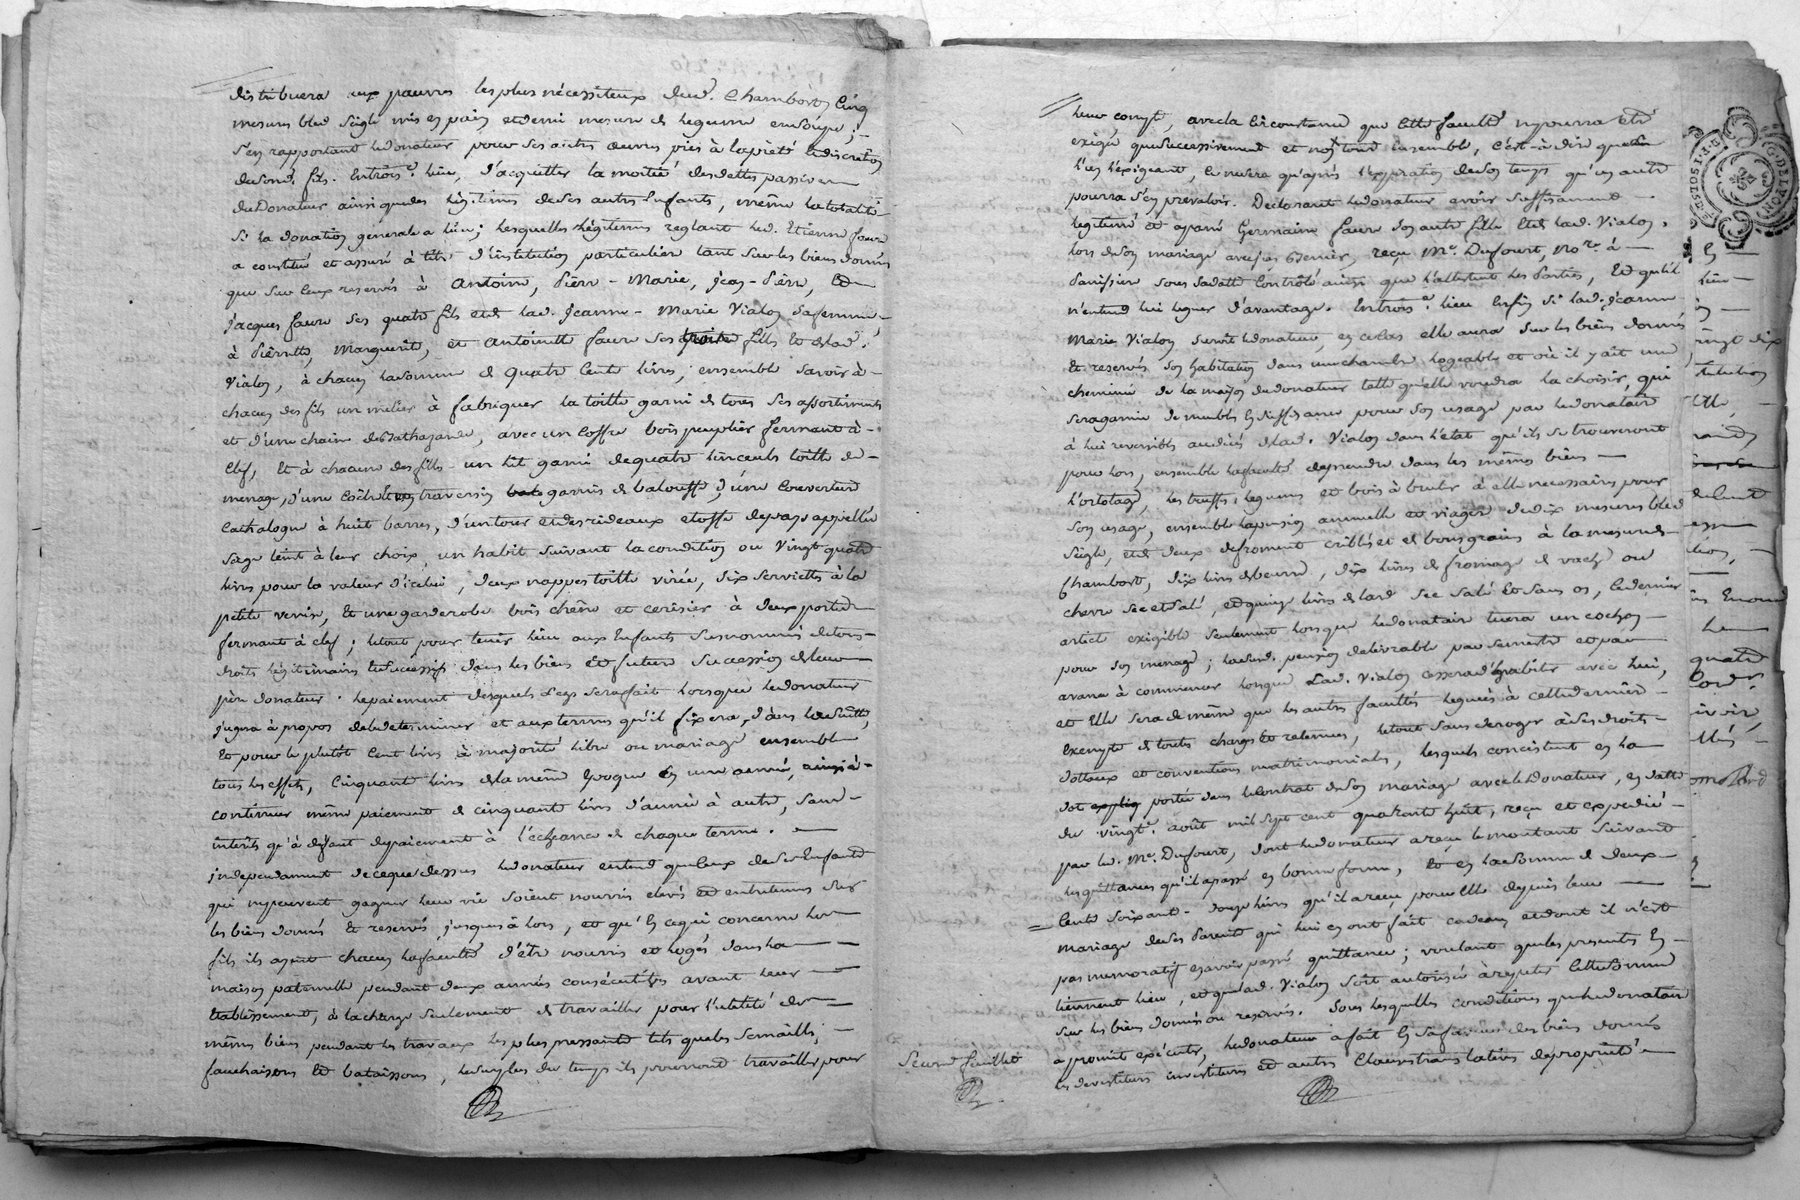 distribuera aux pauvres les plus nécessiteux dud. Chambost Cinq
mesures bled Seigle mis en pain et demi mesure de legume en soupe;
s'en rapportant le donateur pour ses autres œuvres pies à la piété & discretion
de son d. fils. Entrois.e lieu, d'acquitter la moitié des dettes passives
du Donateur ainsi que les légitimes de ses autres Enfants, même la totalité
si la donation generale a lieu; lesquelles légitimes reglant led. Etienne faure
a constitué et assuré à titre d'institution particuliere tant sur les biens donnés
que sur ceux reservés à Antoine, Pierre-Marie, Jean-Pierre, Et
Jacques faure ses quatre fils et de lad. Jeanne-Marie Vialon sa femme,
à Pierrette, Marguerite, et Antoinette faure ses filles et de lad.
Vialon, à chacun la somme de quatre Cent livres, ensemble savoir à
chacun des fils un métier à fabriquer la toille garni de tous ses assortiments
et d'une chaine de , avec un Coffre bois peuplier fermant à
clef, Et à chacune des filles un lit garni de quatre linceuls toille de
menage, d'une traversin garnis de balouffe, d'une Couverture
Cathalogne à huit barres, d'un tour et des rideaux etoffe de pays appellée
sage teint à leur choix, un habit suivant la condition ou Vingt quatre
livres pour la valeur d'icelui, deux nappes toille virée, six serviettes à la
petite venise, Et une garderobe bois chêne et cerisier à deux portes
fermant à clef; le tout pour tenir lieu aux Enfants susnommés de tous
droits légitimaires & successifs dans les biens Et future succession de leur
père donateur. le paiement desquels Legs sera fait lorsque le donateur
jugera à propos de le determiner et aux termes qu'il fixera, dans la suitte,
Et pour le plutôt Cent livres à majorité libre ou mariage ensemble
tous les effets, Cinquante livres de la même Epoque en une année, ainsi à
continuer même paiement de cinquante livres d'année à autre, sans
intérêts qu'à défaut de paiement à l'échéance de chaque terme.
indépendament de ce que dessus le donateur entend que ceux de ses Enfants
qui ne peuvent gagner leur vie soient nourris elevés et entretenus sur
les biens donnés Et reservés jusques à lors, et qu'En ce qui concerne les
fils ils ayent chacun la faculté d'être nourris et logés dans la
maison paternelle pendant deux années consécutives avant leur
Etablissement, à la charge seulement de travailler pour l'utilité des
mêmes biens pendant les travaux les plus pressants tels que les semailles,
fauchaisons Et bataissons, le surplus du temps ils pourront travailler pour
leur compte, avec la circonstance que cette faculté ne pourra être
exigée que successivement et non ensemble, c'est-à-dire que
l'un l'exigeant, ce ne sera qu'après l'expiration de son temps qu'un autre
pourra s'en prevaloir. Déclarant le donateur avoir suffisament
legitimé et aparé Germaine faure son autre fille et de lad. Vialon,
lors de son mariage avec , reçu M.e Dufourt, No.re à
Panissiere sous sa datte Contrôlé ainsi que l'attestent les Parties, Et qu'il
n'entend lui leguer d'avantage. Entrois.e lieu Enfin si lad. Jeanne
Marie Vialon survit le donateur, en ce cas elle aura sur les biens donnés
Et reservés son habitation dans une chambre logeable et où il y ait une
cheminée de la maison du donateur telle qu'elle voudra la choisir, qui
sera garnie de meubles en suffisance pour son usage par le donataire
à lui reversibles au décès de lad. Vialon dans l'état qu'ils se trouveront
pour lors, ensemble la faculté de prendre dans les mêmes biens
l'ortolage, les truffes, legumes et bois à bruler à elle necessaires pour
son usage, ensemble la pension annuelle et viagere de dix mesures bled
seigle, et de deux de froment criblés et de bons grains à la mesure de
Chambost, dix livres de beurre, dix livres de fromage de vache ou
chevre sec et salé, et quinze livres de lard sec salé Et sans os, le dernier
article exigible seulement lorsque le donataire tuera un cochon
pour son menage; la susd. pension delivrable par semestre et par
avance à commencer lorsque Lad. Vialon cessera d'habiter avec lui,
et Elle sera de même que les autres facultés leguées à cette derniere
Exempte de toutes charges Et retenues, le tout sans deroger à ses droits
dottaux et conventions matrimoniales, lesquels consistent en la
dot portée dans le Contrat de son mariage avec le donateur, en datte
du vingt.e août mil sept cent quarante huit, reçu et expedié
par led. M.e Dufourt, dont le donateur a reçu le montant suivant
les quittances qu'il a passé en bonne forme, Et en la somme de deux
Cents soixante-douze livres qu'il a reçu pour elle depuis leur
mariage de ses Parents qui lui en ont fait cadeau et dont il n'est
pas memoratif en avoir passé quittance; voulant que les presentes En
tiennent lieu, et que lad. Vialon soit autorisée à repeter cette somme
sur les biens donnés ou reservés. Sous lesquelles conditions que le donataire
a promit exécuter, le donateur a fait En sa faveur des biens donnés
les devestitures investitures et autres Clauses translatives de propriété
Second feuillet
G. DE LYON